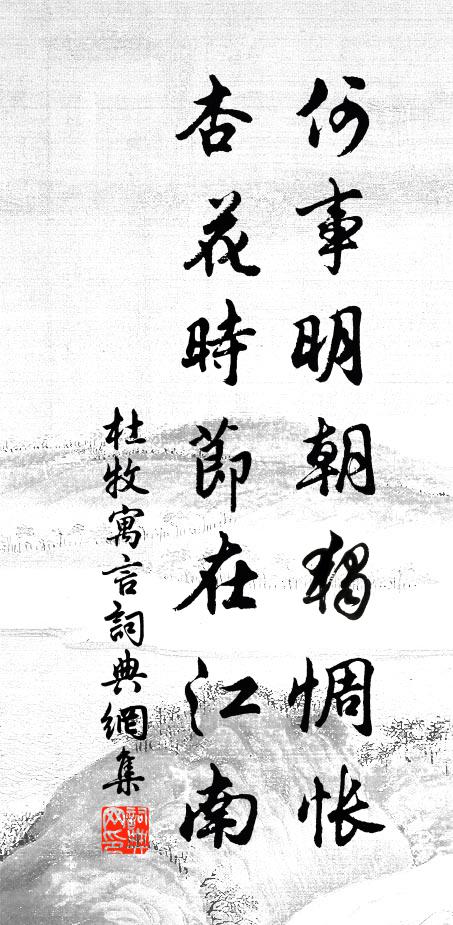 何事明朝獨惆悵
杏花時節在江南
杜牧寓言詞典網集